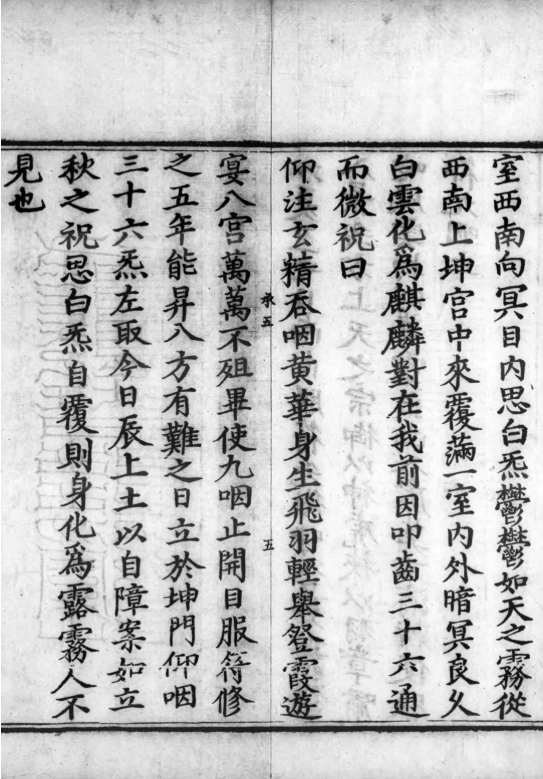 室西南向冥目内思白炁鬱鬱如天之霧從
西南上坤宫中來覆滿一室内外暗冥良乆
白雲化為麒麟對在我前因叩齒三十六通
而微祝曰
仰注玄精吞咽黄華身生飛羽輕舉登霞遊
承五
五
宴八宫萬萬不殂畢使九咽止開目服符修
之五年能昇八方有難之日立於坤門仰咽
三十六炁左取今日辰上土以自障案如立
秋之祝思白炁自覆則身化為露霧人不
見也